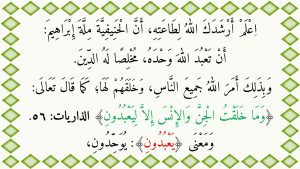 اِعْلَمْ أَرْشَدَكَ اللهُ لِطَاعَتِهِ، أَنَّ الْحَنِيفِيَّةَ مِلَّةَ إِبْرَاهِيمَ:
أَنْ تَعْبُدَ اللهَ وَحْدَهُ، مُخْلِصًا لَهُ الدِّينَ.
وَبِذَلِكَ أَمَرَ اللهُ جَمِيعَ النَّاسِ، وَخَلَقَهُمْ لَهَا؛ كَمَا قَالَ تَعَالَى:
﴿وَمَا خَلَقْتُ الْجِنَّ وَالْإِنْسَ إِلاَّ لِيَعْبُدُونِ﴾ الذاريات: ٥٦.
وَمَعْنَى ﴿يَعْبُدُونِ﴾: يُوَحِّدُونِ،